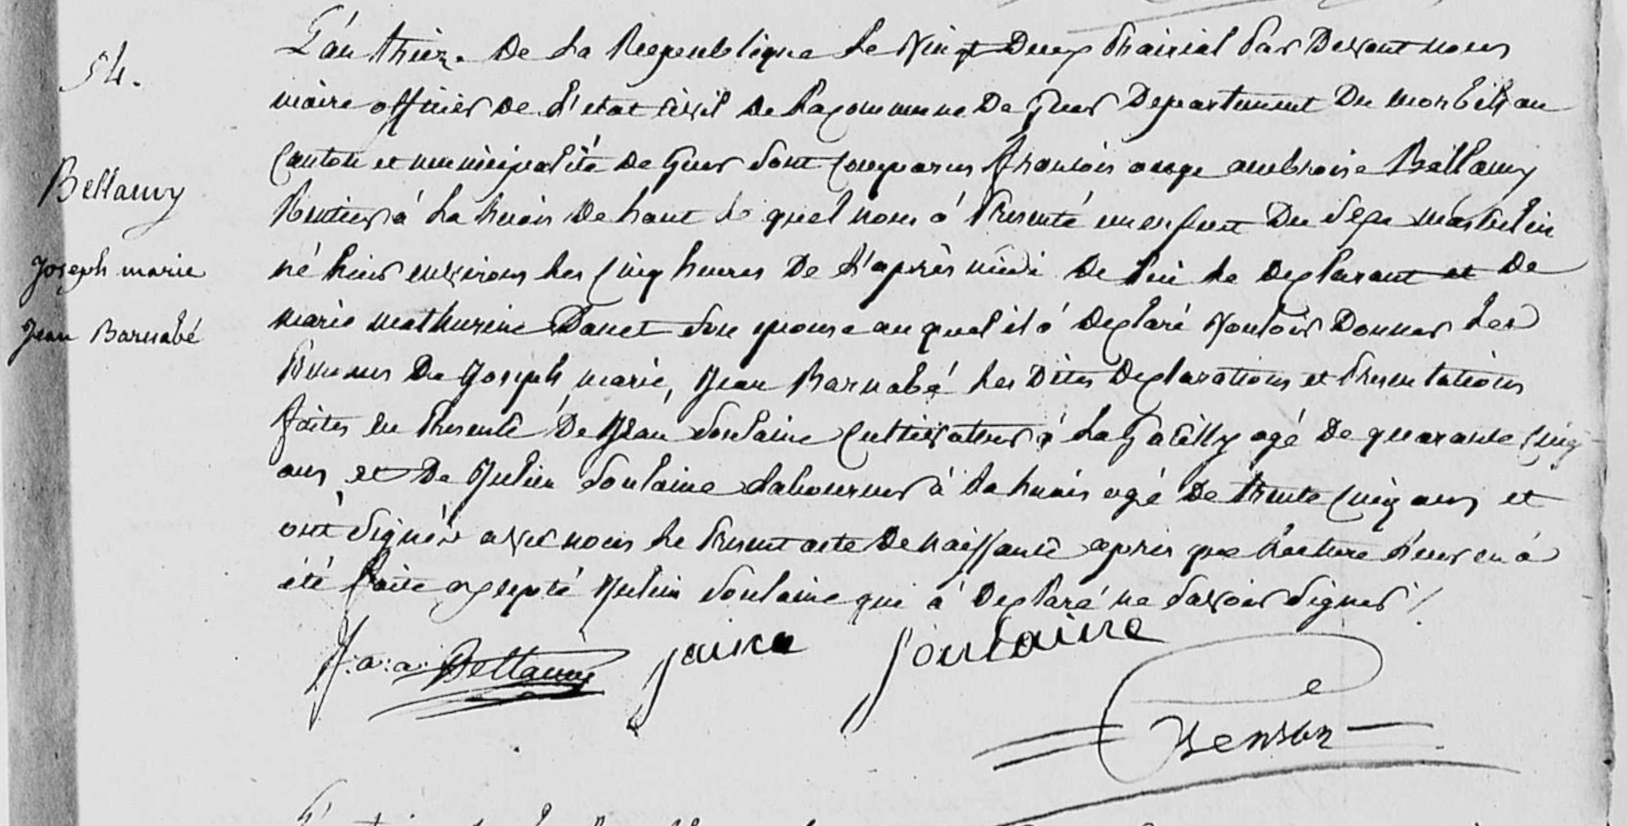 54.
Bellamy
Joseph marie
Jean Barnabé
L'an treize De La Republique Le Vingt Deux Prairial Par Devant nous
maire officier de L'etat civil de La commune De Guer Departement Du morbihan
Canton et municipalité de Guer sont comparus francois ange ambroise Bellamy
Rentier á La huais De haut le quel nous á Presenté un enfant Du sexe masculin
né hier environs les cinq heures De L'après midi De lui Le Declarant et De
marie mathurine Danet son epouse au quel il á declaré Vouloir Donner Les
Prenoms De Joseph, marie, Jean Barnabé Les Dites Declarations et Presentations
faites en Presence De Jean soulaine cultivateur á La Gacilly agé De quarante cinq
ans et De Julien soulaine Laboureur à La huais agé De trente cinq ans et
ont signés avec nous Le Present acte De naissance après que Lecture Leur en á
été faite excepté Julien soulaine qui á Declaré ne savoir signer /.
f. a. a. Bellamy Soulaine